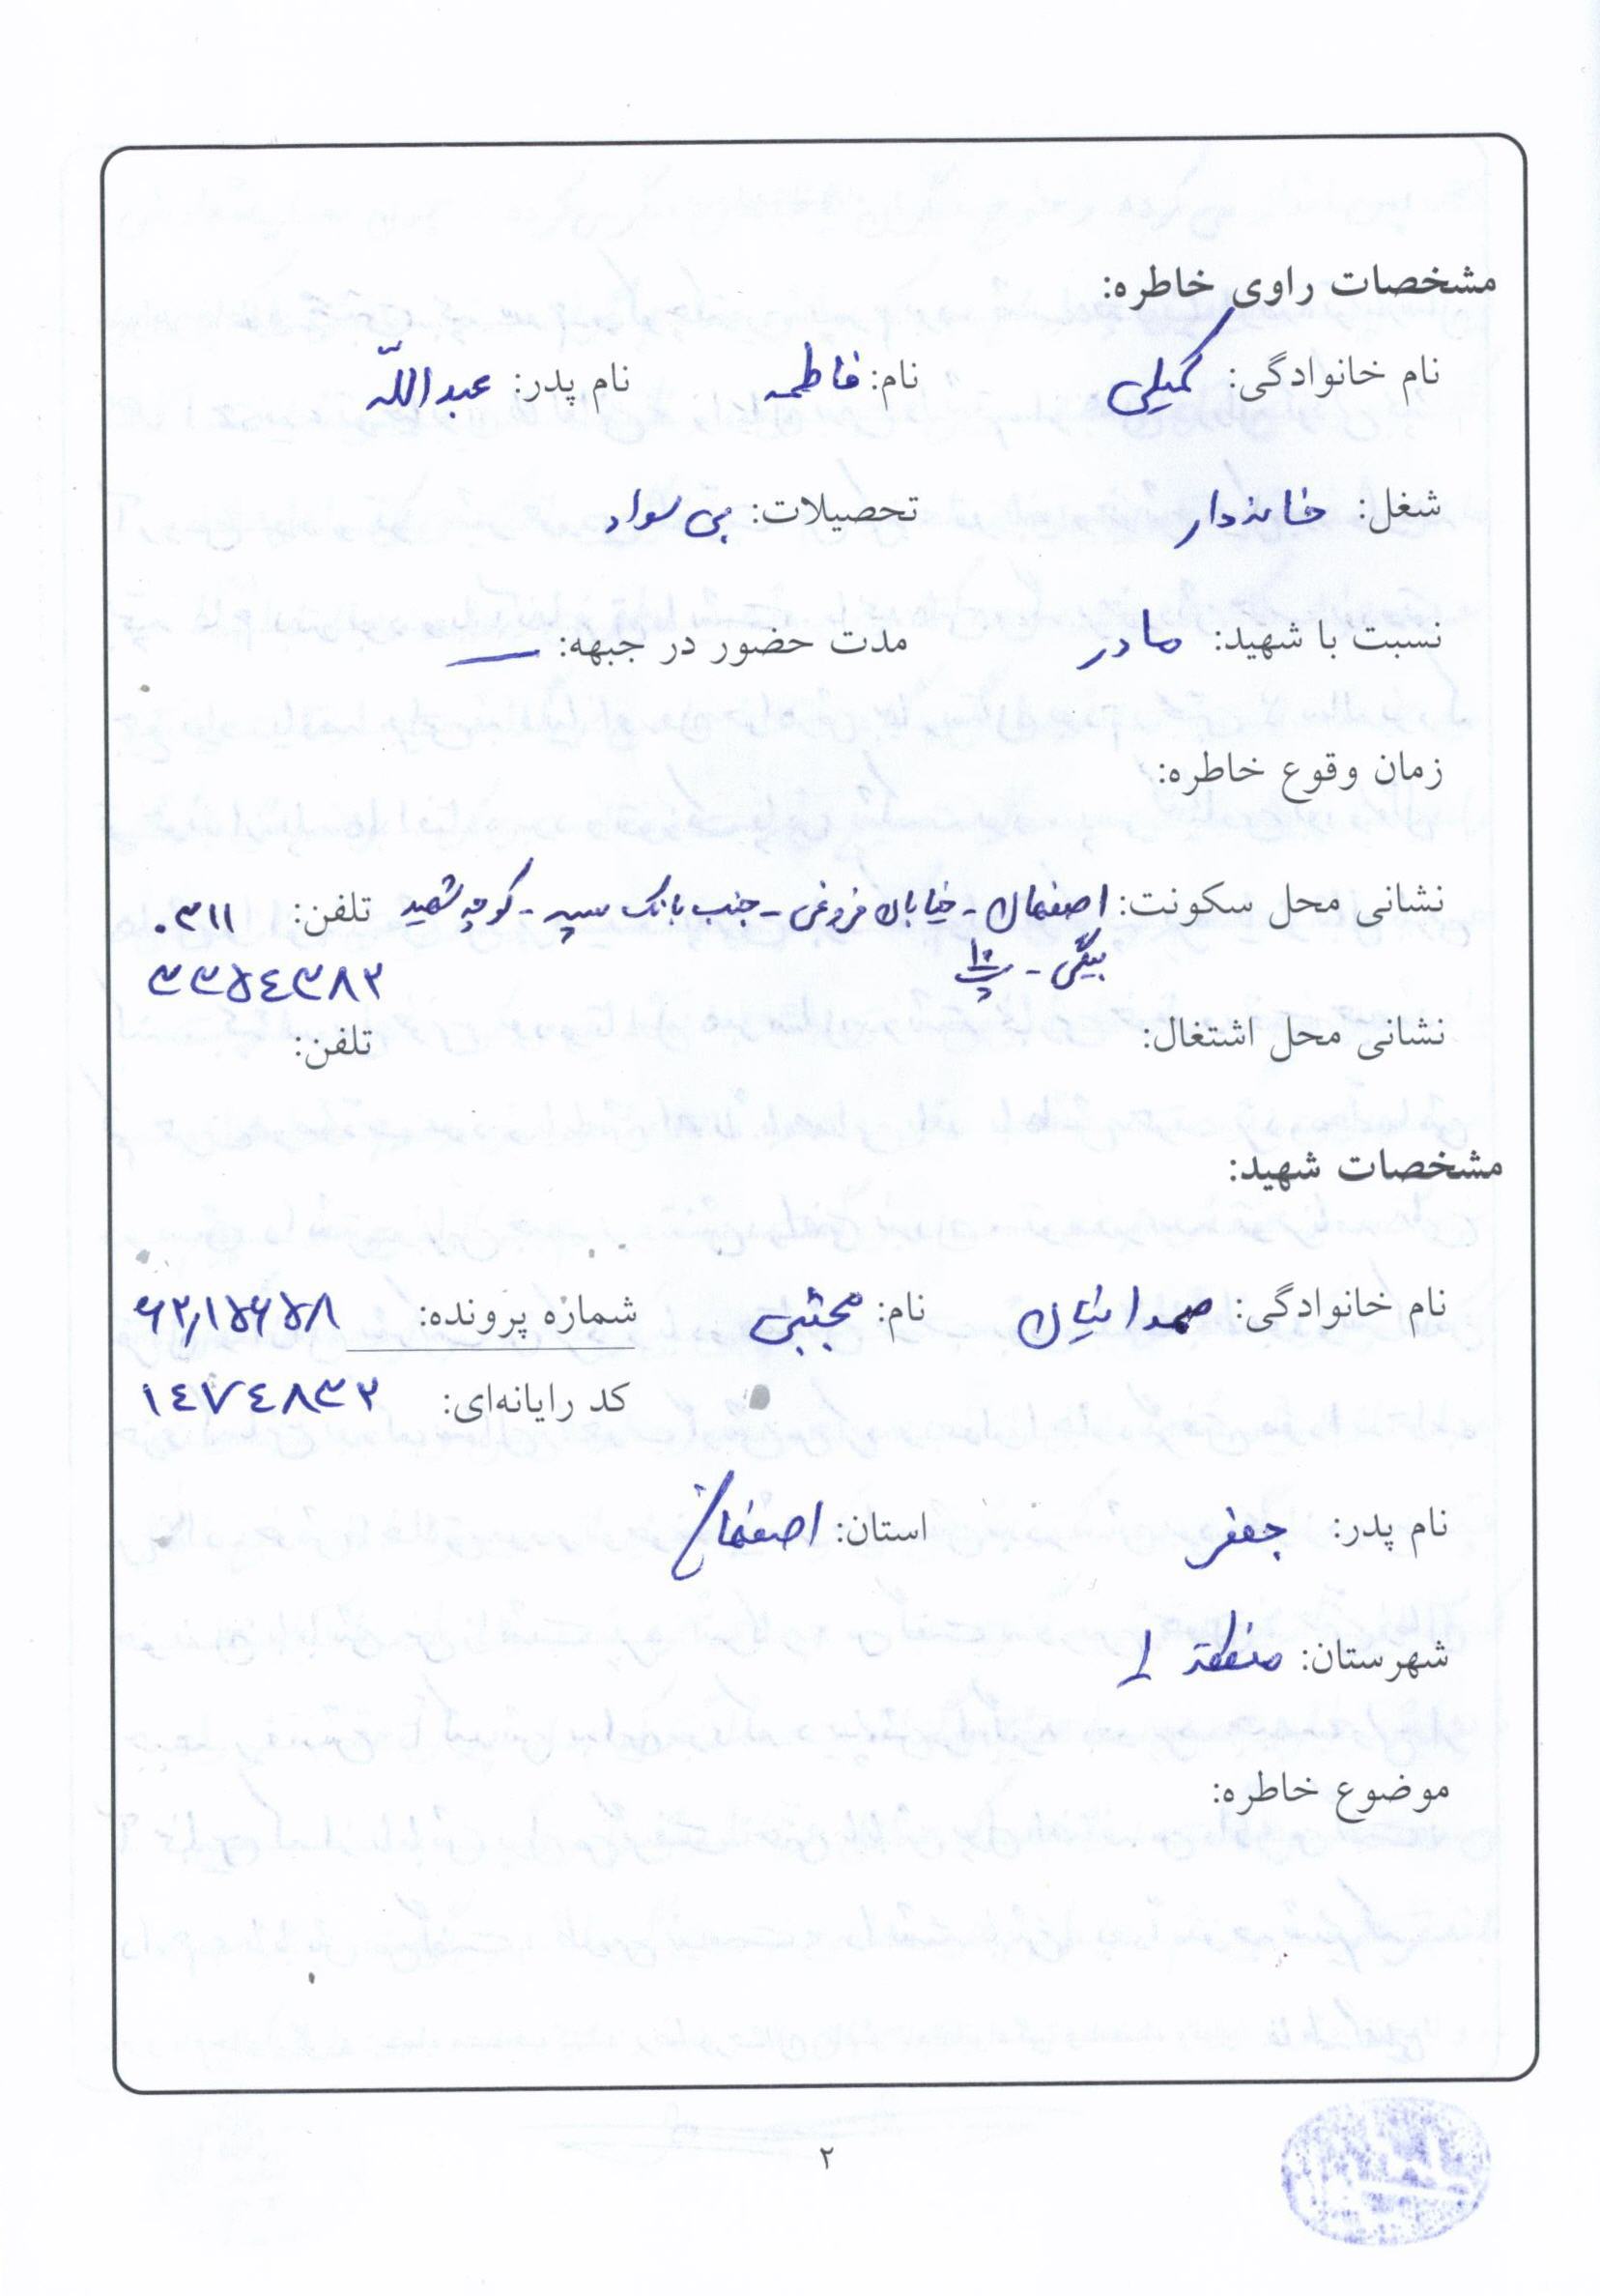 مشخصات راوی خاطره:
نام خانوادگی: کمیلی نام: فاطمه نام پدر: عبدالله
شغل: خانه‌دار تحصیلات: بی سواد
نسبت با شهید: مادر مدت حضور در جبهه: —
زمان وقوع خاطره:
نشانی محل سکونت: اصفهان - خیابان فروغی - جنب بانک سپه - کوچه شهید تلفن: ۰۳۱۱
بیگی - پ ۱۰ ۳۳۵۴۳۸۲
نشانی محل اشتغال: تلفن:
مشخصات شهید:
نام خانوادگی: صمدانیان نام: مجتبی شماره پرونده: ۶۲٫۱۵۶۵۸
کد رایانه‌ای: ۱۴۷۴۸۳۲
نام پدر: جعفر استان: اصفهان
شهرستان: منطقه ۱
موضوع خاطره:
۲